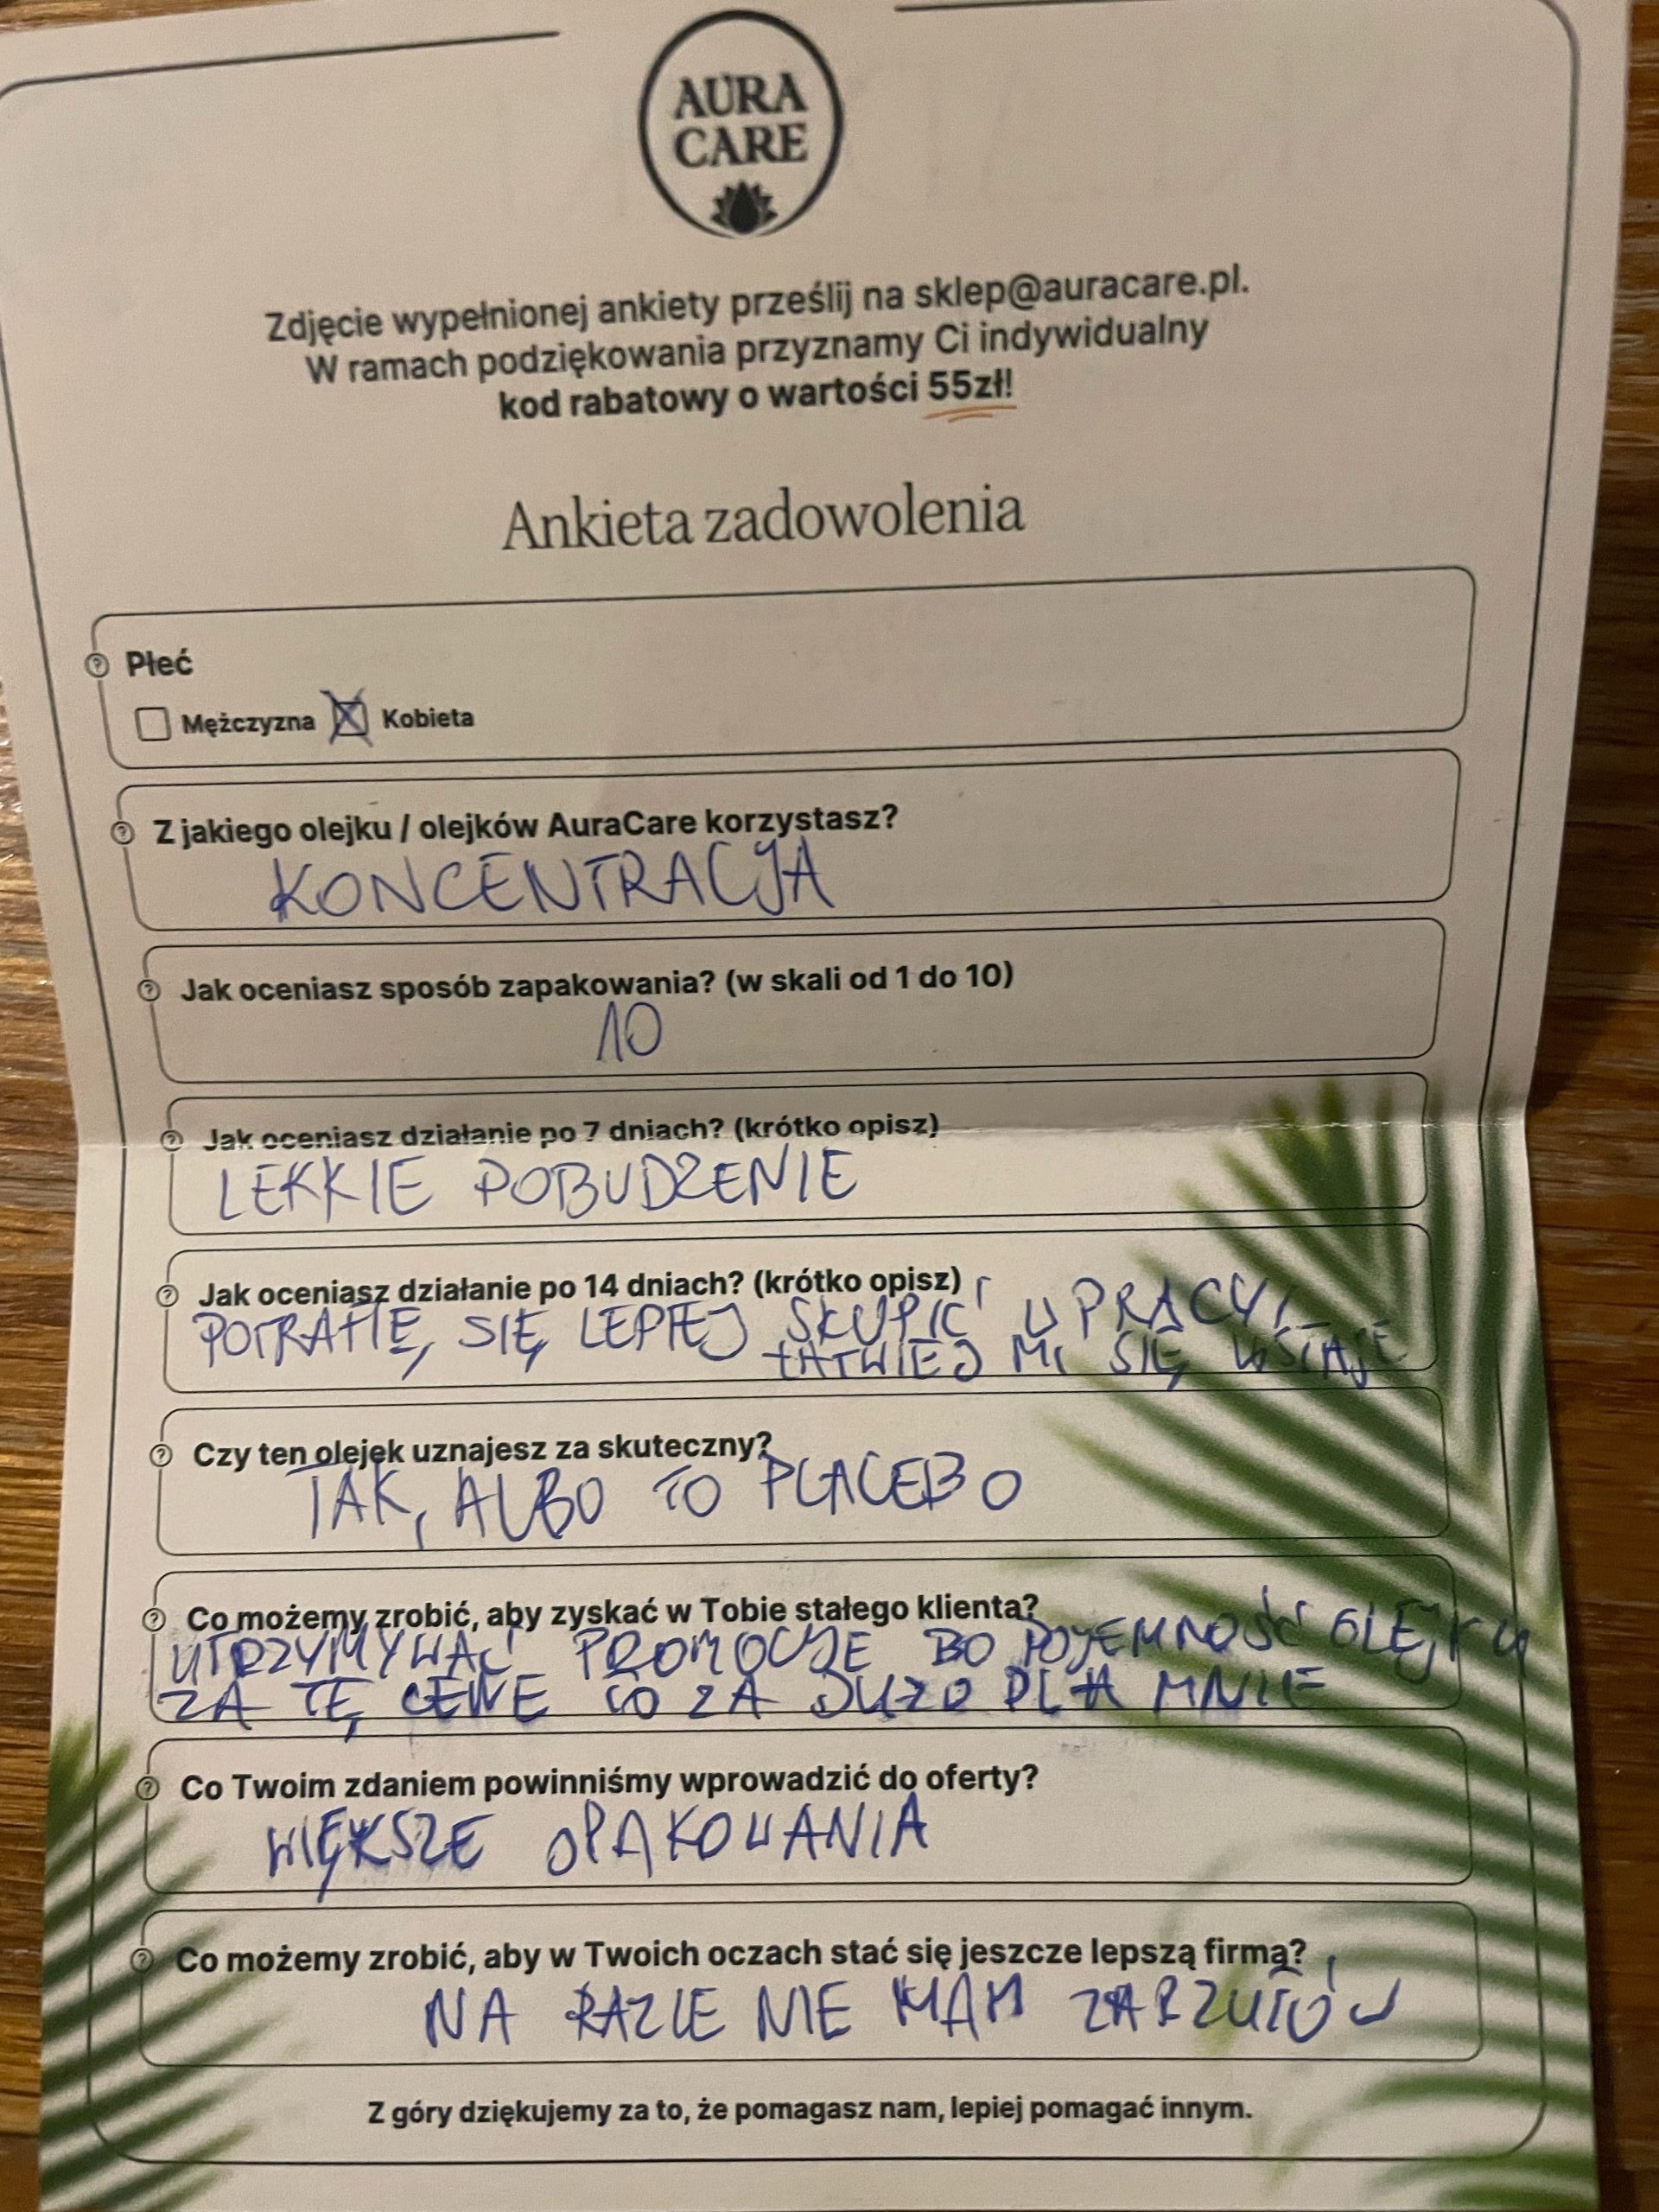 AURA
CARE
Zdjęcie wypełnionej ankiety prześlij na sklep@auracare.pl.
W ramach podziękowania przyznamy Ci indywidualny
kod rabatowy o wartości 55zł!
Ankieta zadowolenia
Płeć
Mężczyzna X Kobieta
Z jakiego olejku / olejków AuraCare korzystasz?
KONCENTRACJA
Jak oceniasz sposób zapakowania? (w skali od 1 do 10)
10
Jak oceniasz działanie po 7 dniach? (krótko opisz)
LEKKIE POBUDZENIE
Jak oceniasz działanie po 14 dniach? (krótko opisz)
POTRAFIĘ SIĘ LEPIEJ SKUPIĆ W PRACY,
ŁATWIEJ MI SIĘ WSTAJE
Czy ten olejek uznajesz za skuteczny?
TAK, ALBO TO PLACEBO
Co możemy zrobić, aby zyskać w Tobie stałego klienta?
UTRZYMYWAĆ PROMOCJE BO POJEMNOŚĆ OLEJKU
ZA TĘ CENE TO ZA DUŻO DLA MNIE
Co Twoim zdaniem powinniśmy wprowadzić do oferty?
WIĘKSZE OPAKOWANIA
Co możemy zrobić, aby w Twoich oczach stać się jeszcze lepszą firmą?
NA RAZIE NIE MAM ZARZUTÓW
Z góry dziękujemy za to, że pomagasz nam, lepiej pomagać innym.